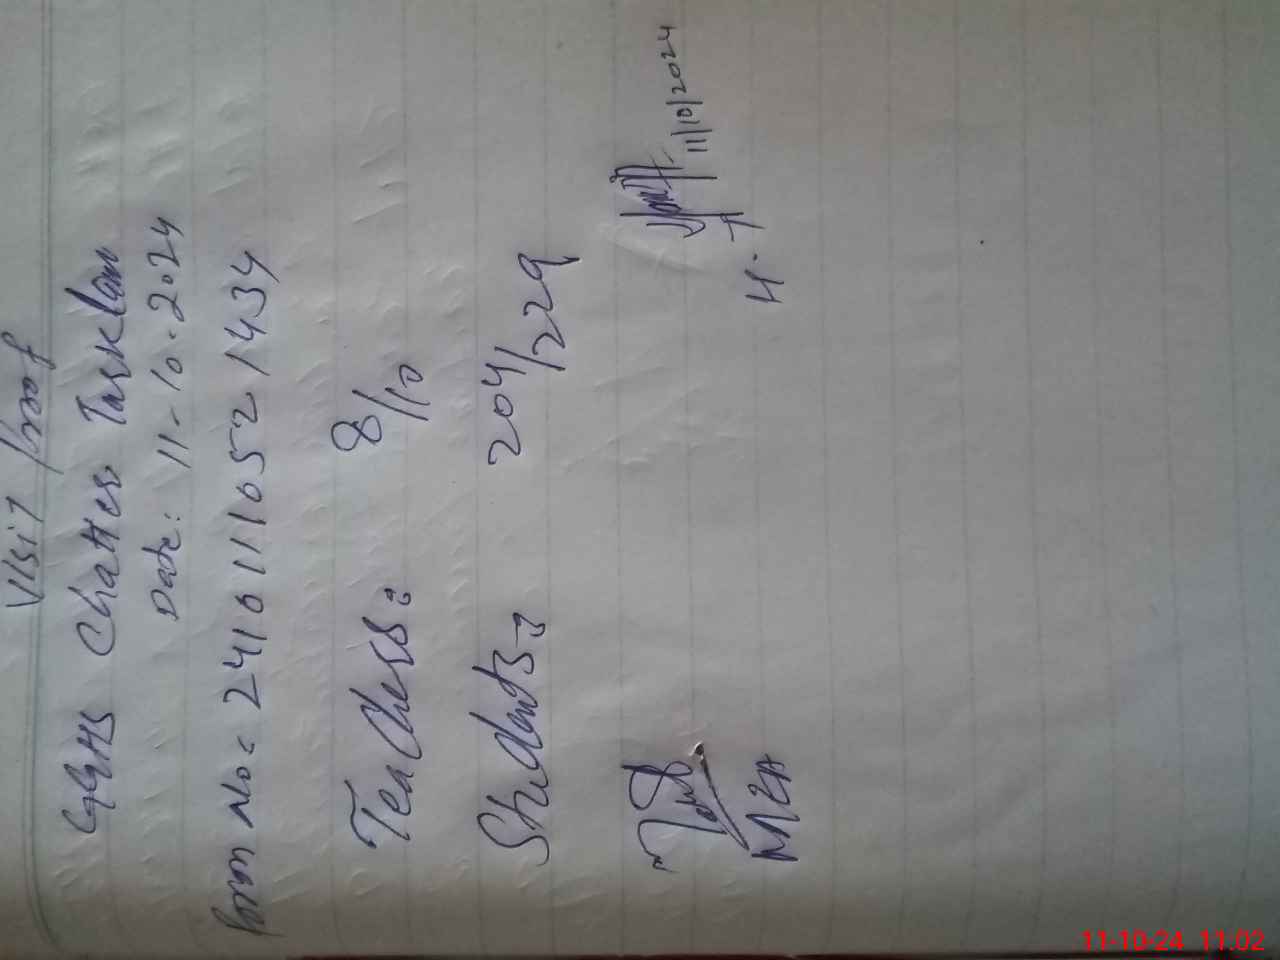 Visit Proof
GGHS Chatter Tarklani
Date: 11-10-2024
Form No: 24101110521434
Teachers: 8/10
Students: 204/229
11/10/2024
MEA
H.T
11-10-24 11.02